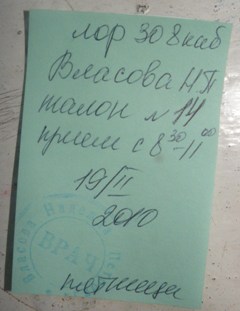 лор 308 каб
Власова Н П
талон № 14
прием с 8³⁰-11⁰⁰
19/II
2010
пятница
ВРАЧ
Власова